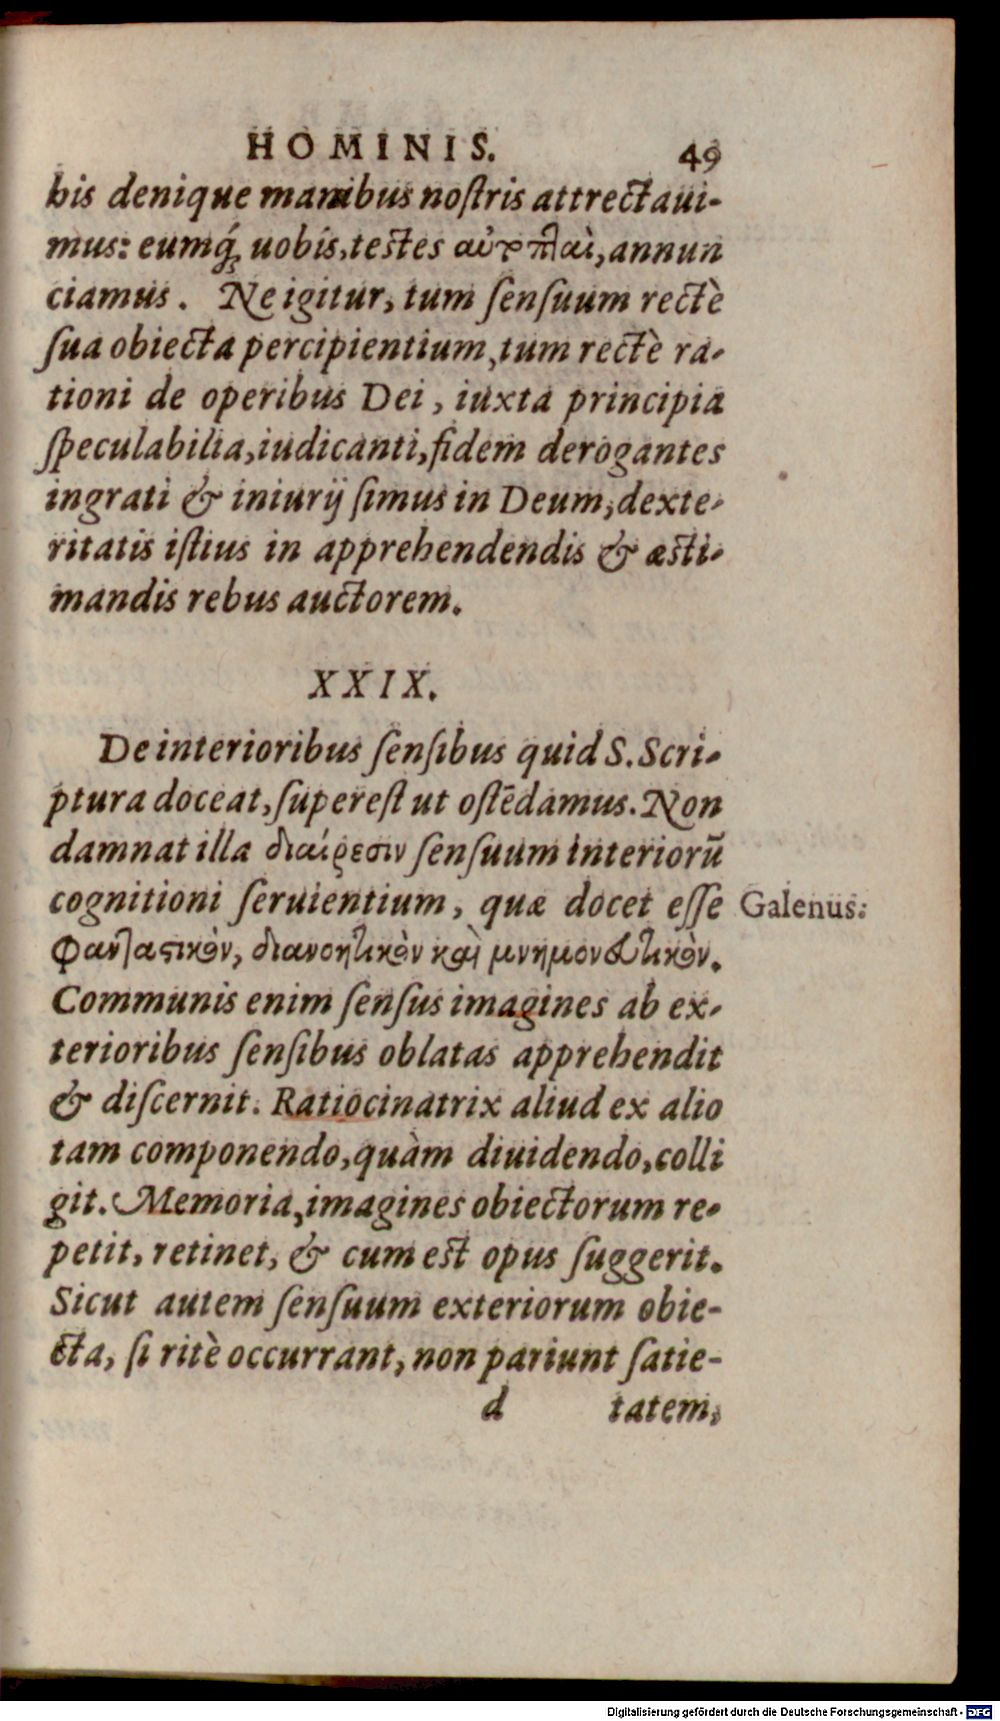 HOMINIS. 49
his denique manibus noſtris attrectaui-
mus: eumq́; uobis, testes αὐτόπλαι, annun
ciamus. Ne igitur, tum ſenſuum rectè
ſua obiecta percipientium, tum rectè ra-
tioni de operibus Dei, iuxta principia
ſpeculabilia, iudicanti, fidem derogantes
ingrati & iniurij ſimus in Deum, dexte-
ritatis iſtius in apprehendendis & æsti-
mandis rebus auctorem.
XXIX.
De interioribus ſenſibus quid S. Scri-
ptura doceat, ſupereſt ut oſtēdamus. Non
damnat illa διαίρεσιν ſenſuum interiorū
cognitioni ſeruientium, quæ docet eſſe
Galenus:
Φανταστικὸν, διανοητικὸν καὶ μνημονευτικὸν.
Communis enim ſenſus imagines ab ex-
terioribus ſenſibus oblatas apprehendit
& diſcernit. Ratiocinatrix aliud ex alio
tam componendo, quàm diuidendo, colli
git. Memoria, imagines obiectorum re-
petit, retinet, & cum est opus ſuggerit.
Sicut autem ſenſuum exteriorum obie-
cta, ſi ritè occurrant, non pariunt ſatie-
d tatem,
Digitalisierung gefördert durch die Deutsche Forschungsgemeinschaft - DFG